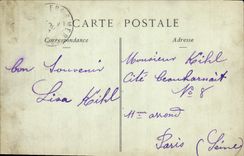 CARTE POSTALE
Correspondance
Adresse
Bon Souvenir
Lisa Kihl
Monsieur Kihl
Cité
No 8
11me arrond
Paris (Seine)